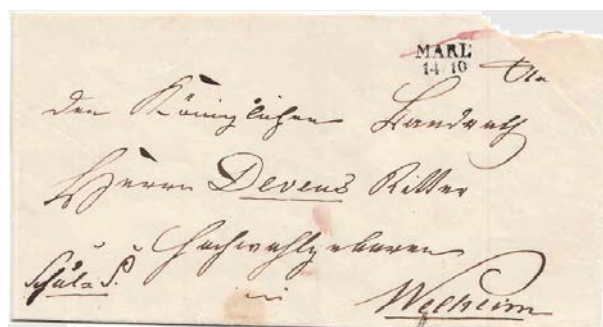 MARL
14/10
An
den Königlichen Landrath
Herrn Devens Ritter
Hochwohlgeboren
Schul. S.
in Welheim